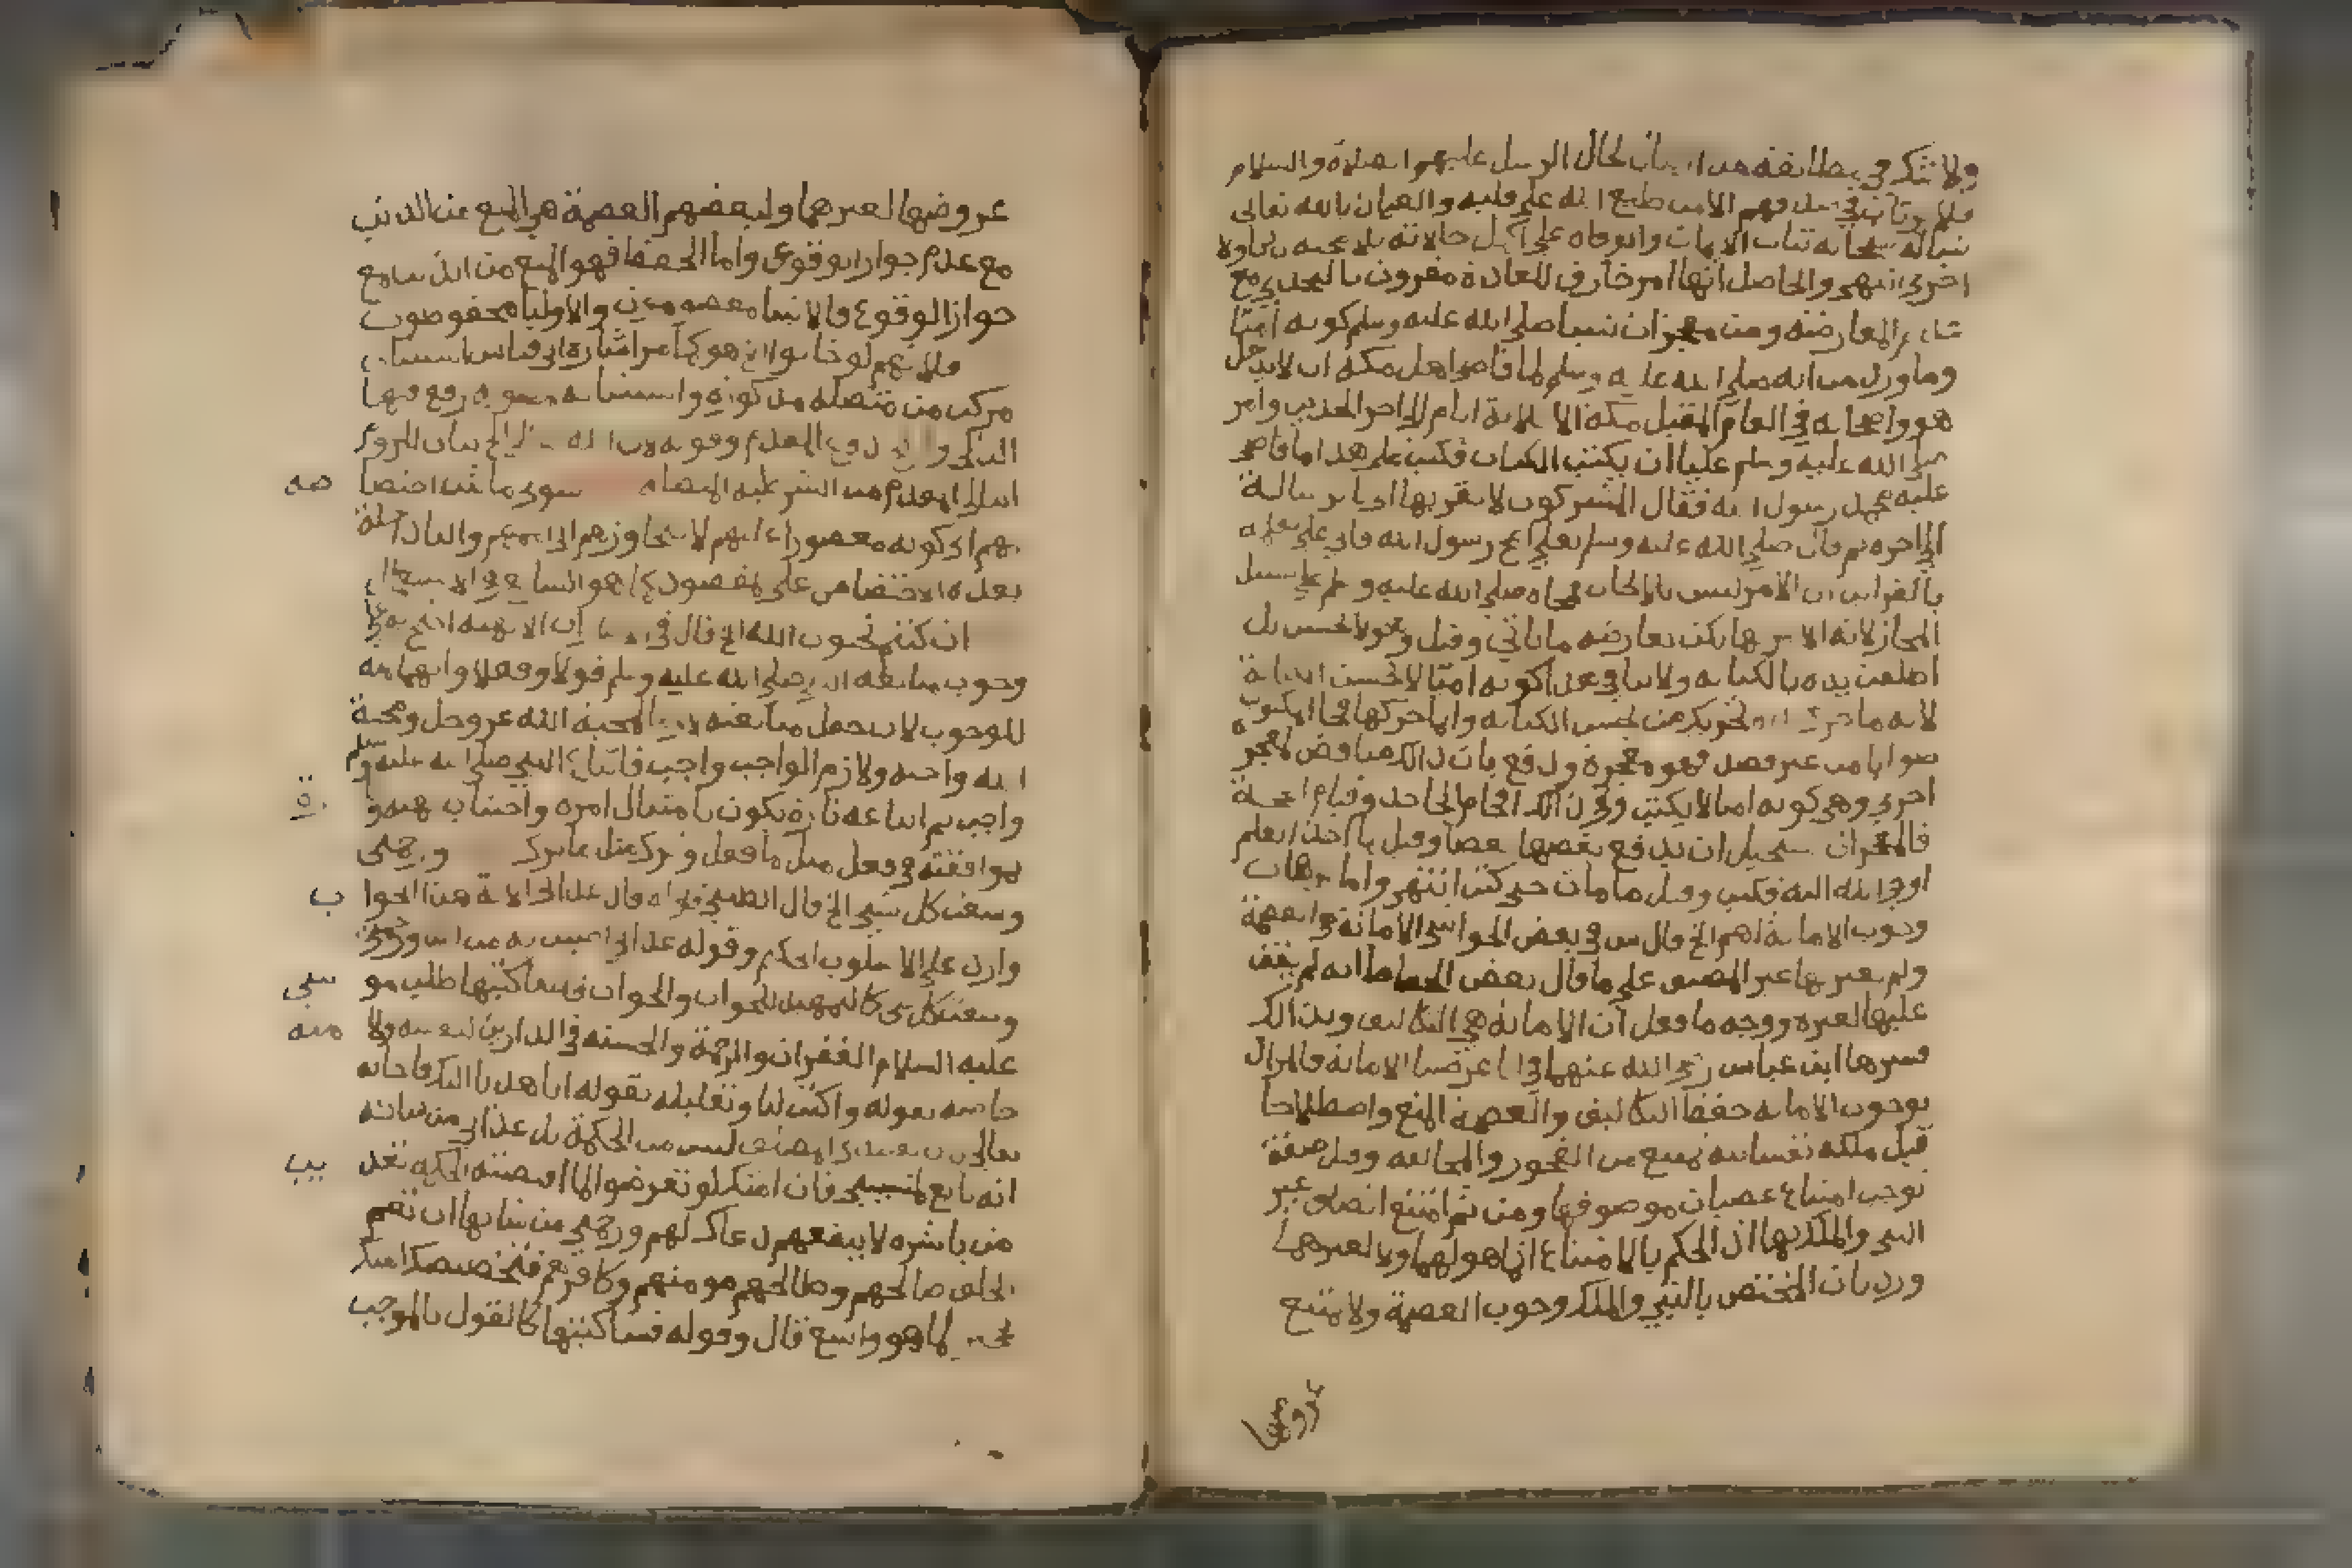 ولا شك في مطابقة هذا البيان لحال الرسل عليهم الصلاة والسلام
فلا يرتاب في صدقهم الا من طبع الله على قلبه والعياذ بالله تعالى
نسأله سبحانه ثبات الايمان والوفاة على اكمل حالاته بلا محنة دنيا ولا
اخرى انتهى والحاصل انها امر خارق للعادة مقرون بالتحدي مع
عدم المعارضة ومن معجزات نبينا صلى الله عليه وسلم كونه اميا
وما ورد من انه صلى الله عليه وسلم لما قاضى اهل مكة ان لا يدخل
هو واصحابه في العام المقبل مكة الا ثلاثة ايام الى اخر الحديث وامر
صلى الله عليه وسلم عليا ان يكتب الكتاب فكتب علي هذا ما قاضى
عليه محمد رسول الله فقال المشركون لا نقر بها اي بالرسالة
الى اخره ثم قال صلى الله عليه وسلم لعلي امح رسول الله فابى علي لعلمه
بالقرائن ان الامر ليس للايجاب فمحاه صلى الله عليه وسلم على سبيل
المجاز لانه الامر بها يكن يعارضه ما ياتي وقيل وهو لا يحسن بل
اطلعت يده بالكتابة ولا ينافي هذا كونه اميا لا يحسن الكتابة
لانه ما حرك يده تحريك من يحسن الكتابة وانما حركها فجاء المكتوب
صوابا من غير قصد فهو معجزة ودفع بان ذلك مناقض لمعجزة
اخرى وهي كونه اميا لا يكتب وفي ذلك افحام الجاحد وقيام الحجة
فالمعجزات يستحيل ان يدفع بعضها بعضا وقيل لما اخذ القلم
اوحى الله اليه فكتب وقيل ما مات حتى كتب انتهى واما برهان
وجوب الامانة لهم الخ قال س في بعض الحواشي الامانة والعصمة
ولم يعبر بها غير المصنف على ما قال بعض لعله لم يقف
عليها لغيره ووجه ما فعل ان الامانة هي التكاليف وبذلك
فسرها ابن عباس رضي الله عنهما في انا عرضنا الامانة فالمراد
بوجوب الامانة حفظ التكاليف والعصمة المنع واصطلاحا
قيل ملكة نفسانية تمنع من الفجور والمخالفة وقيل صفة
توجب امتناع عصيان موصوفها ومن ثم امتنع اتصاف غير
النبي والملك بها اذ الحكم بالامتناع انما هو لهما ولا لغيرهما
ورد بان المختص بالنبي والملك وجوب العصمة ولا يمتنع
عروضها
عروضها لغيرهما ولبعضهم العصمة هي المنع من الذنب
مع عدم جواز الوقوع واما الحفظ فهو المنع من الذنب مع
جواز الوقوع فالانبيا معصومون والاوليا محفوظون
فلانهم لو خانوا الخ هو كما مر اشارة الى قياس استثنائي
مركب من متصلة مذكورة واستثنائية رفع فيها
التالي و المقدم وقوله لان الله تعالى الخ بيان للزوم
التالي للمقدم من الشرطية سوى ما ثبت اختصاصه
بهم اي كونه مقصورا عليهم لا يتجاوزهم الى اممهم والباء داخلة
بعد الاختصاص على المقصور كما هو الشايع في الاستعمال
ان كنتم تحبون الله الخ قال في الاية احتج على
وجوب متابعة النبي صلى الله عليه وسلم قولا وفعلا وانها
للوجوب لانه جعل متابعته لازما لمحبة الله عز وجل ومحبة
الله واجبة ولازم الواجب واجب فاتباع النبي صلى الله عليه وسلم
واجب ثم اتباعه تارة يكون بامتثال امره واجتناب نهيه وتارة
بموافقته في فعل مثل ما فعل وترك مثل ما ترك ورحمتي
وسعت كل شيء الخ قال الطيبي قوله قال عذابي الاية هذا الجواب
وارد على الاسلوب الحكيم وقوله عذابي اصيب به من اشاء ورحمتي
وسعت كل شيء كالتمهيد للجواب والجواب فساكتبها طلب موسى
عليه السلام الغفران والرحمة والحسنة في الدارين لنفسه ولامته
خاصة بقوله واكتب لنا وتعليله بقوله انا هدنا اليك فاجابه
تعالى ليس من الحكمة بل عذابي من شانه
انه تابع لمشيتي فان امتك لو تعرضوا لما اقتضته الحكمة تعذيب
من باشره لا ينفعهم دعاك لهم ورحمتي من شانها ان تعم
الخلق صالحهم وطالحهم مومنهم وكافرهم فتخصيصك امتك
لما هو واسع قال وقوله فساكتبها كالقول بالموجب